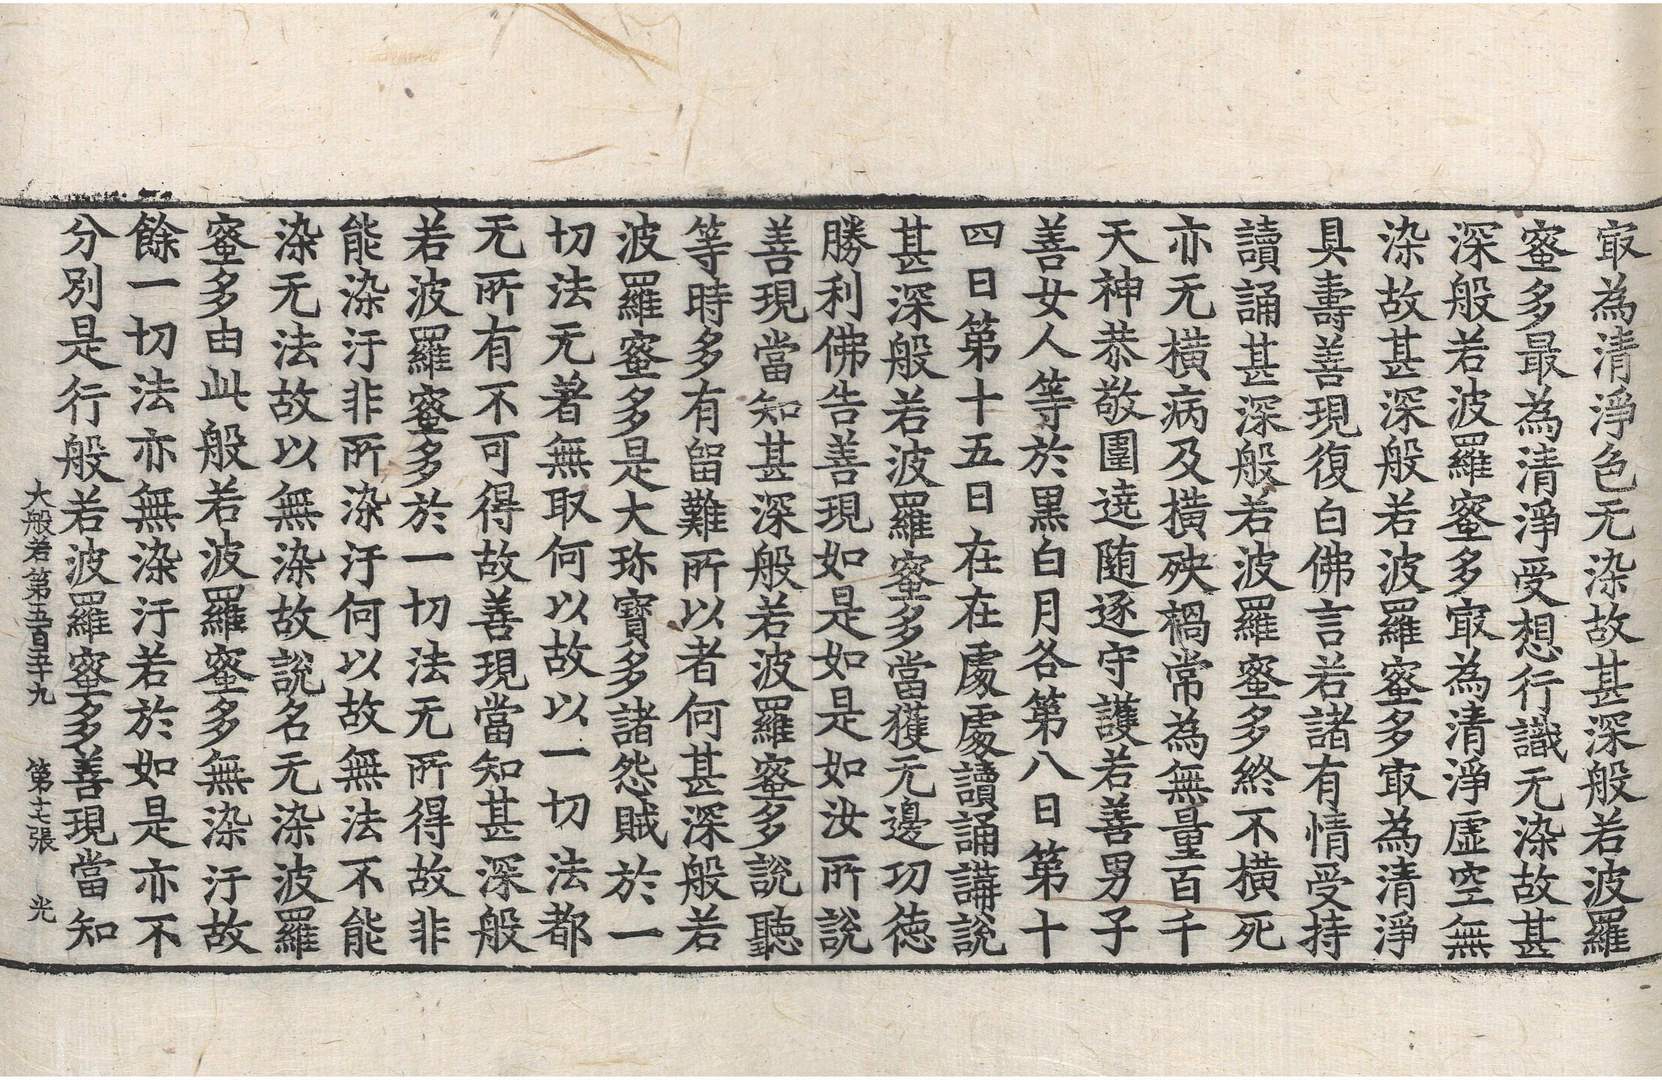 㝡為清淨色无染故甚深般若波羅
蜜多最為清淨受想行識无染故甚
深般若波羅蜜多㝡為清淨虛空無
染故甚深般若波羅蜜多㝡為清淨
具壽善現復白佛言若諸有情受持
讀誦甚深般若波羅蜜多終不橫死
亦无橫病及橫殃禍常為無量百千
天神恭敬圍遶随逐守護若善男子
善女人等於黑白月各第八日第十
四日第十五日在在處處讀誦講說
甚深般若波羅蜜多當獲无邊功徳
勝利佛告善現如是如是如汝所說
善現當知甚深般若波羅蜜多說聽
等時多有留難所以者何甚深般若
波羅蜜多是大珎寶多諸怨賊於一
切法无著無取何以故以一切法都
无所有不可得故善現當知甚深般
若波羅蜜多於一切法无所得故非
能染汙非所染汙何以故無法不能
染无法故以無染故說名无染波羅
蜜多由此般若波羅蜜多無染汙故
餘一切法亦無染汙若於如是亦不
分別是行般若波羅蜜多善現當知
大般若第五百五十九 第十七張 光